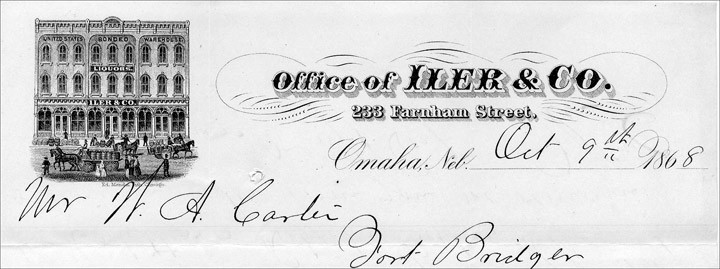 UNITED STATES BONDED WAREHOUSE
LIQUORS
ILER & CO.
Office of ILER & CO.
233 Farnham Street.
Omaha, Neb. Oct 9th 1868
Mr W. A. Carter
Fort Bridger